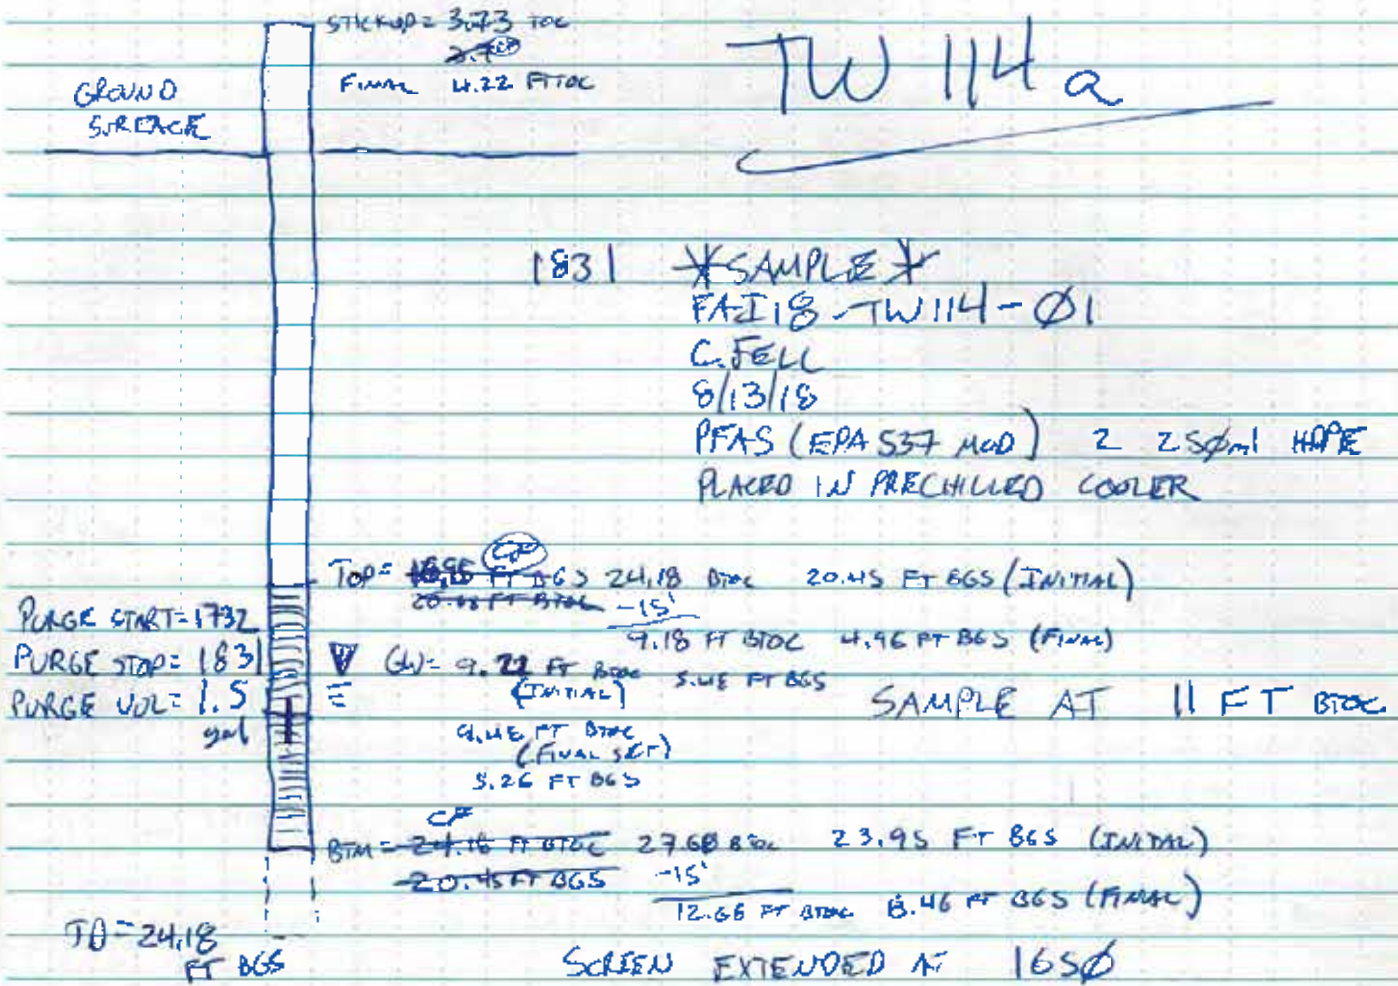 STICKUP = 3.73 TOC
FINAL 4.22 FT TOC
TW 114a
GROUND
SURFACE
1831 *SAMPLE*
FAI18-TW114-Ø1
C. FELL
8/13/18
PFAS (EPA 537 MOD) 2 25Øml HDPE
PLACED IN PRECHILLED COOLER
TOP = FT BGS 24.18 BTOC 20.45 FT BGS (INITIAL)
20.68 FT BTOC -15'
9.18 FT BTOC 4.96 FT BGS (FINAL)
PURGE START = 1732
PURGE STOP = 1831
PURGE VOL = 1.5
gal
GW = 9.22 FT BTOC 5.48 FT BGS
(INITIAL)
SAMPLE AT 11 FT BTOC
9.48 FT BTOC
(FINAL SET)
5.26 FT BGS
CF
BTM = 24.18 FT BTOC 27.68 BTOC 23.95 FT BGS (INITIAL)
20.45 FT BGS -15'
12.68 FT BTOC 8.46 FT BGS (FINAL)
TD = 24.18
FT BGS
SCREEN EXTENDED AT 165Ø